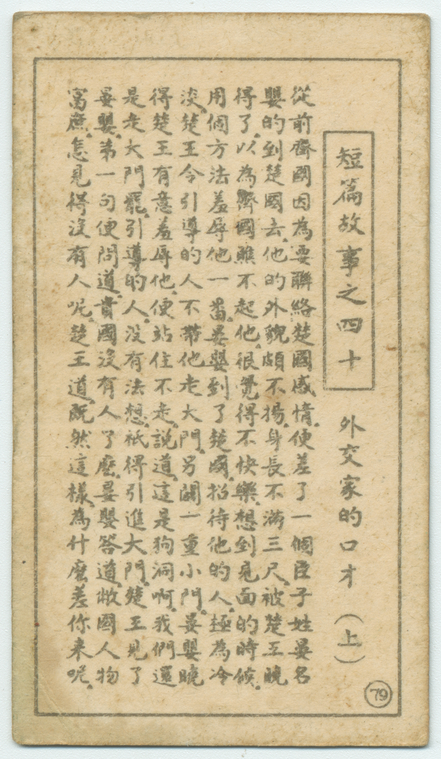 短篇故事之四十
外交家的口才（上）
從前齊國因為要聯絡楚國感情、便差了一個臣子姓晏名
嬰的到楚國去、他的外貌頗不揚、身長不滿三尺、被楚王曉
得了、以為齊國瞧不起他、很覺得不快樂、想到見面的時候、
用個方法羞辱他一番、晏嬰到了楚國、招待他的人極為冷
淡、楚王令引導的人不帶他走大門、另闢一重小門、晏嬰曉
得楚王有意羞辱他、便站住不走、說道、這是狗洞啊、我們還
是走大門罷、引導的人沒有法想、祇得引進大門、楚王見了
晏嬰、第一句便問道、貴國沒有人了麼、晏嬰答道、敝國人物
富庶、怎見得沒有人呢、楚王道、既然這樣、為什麼差你來呢、
79